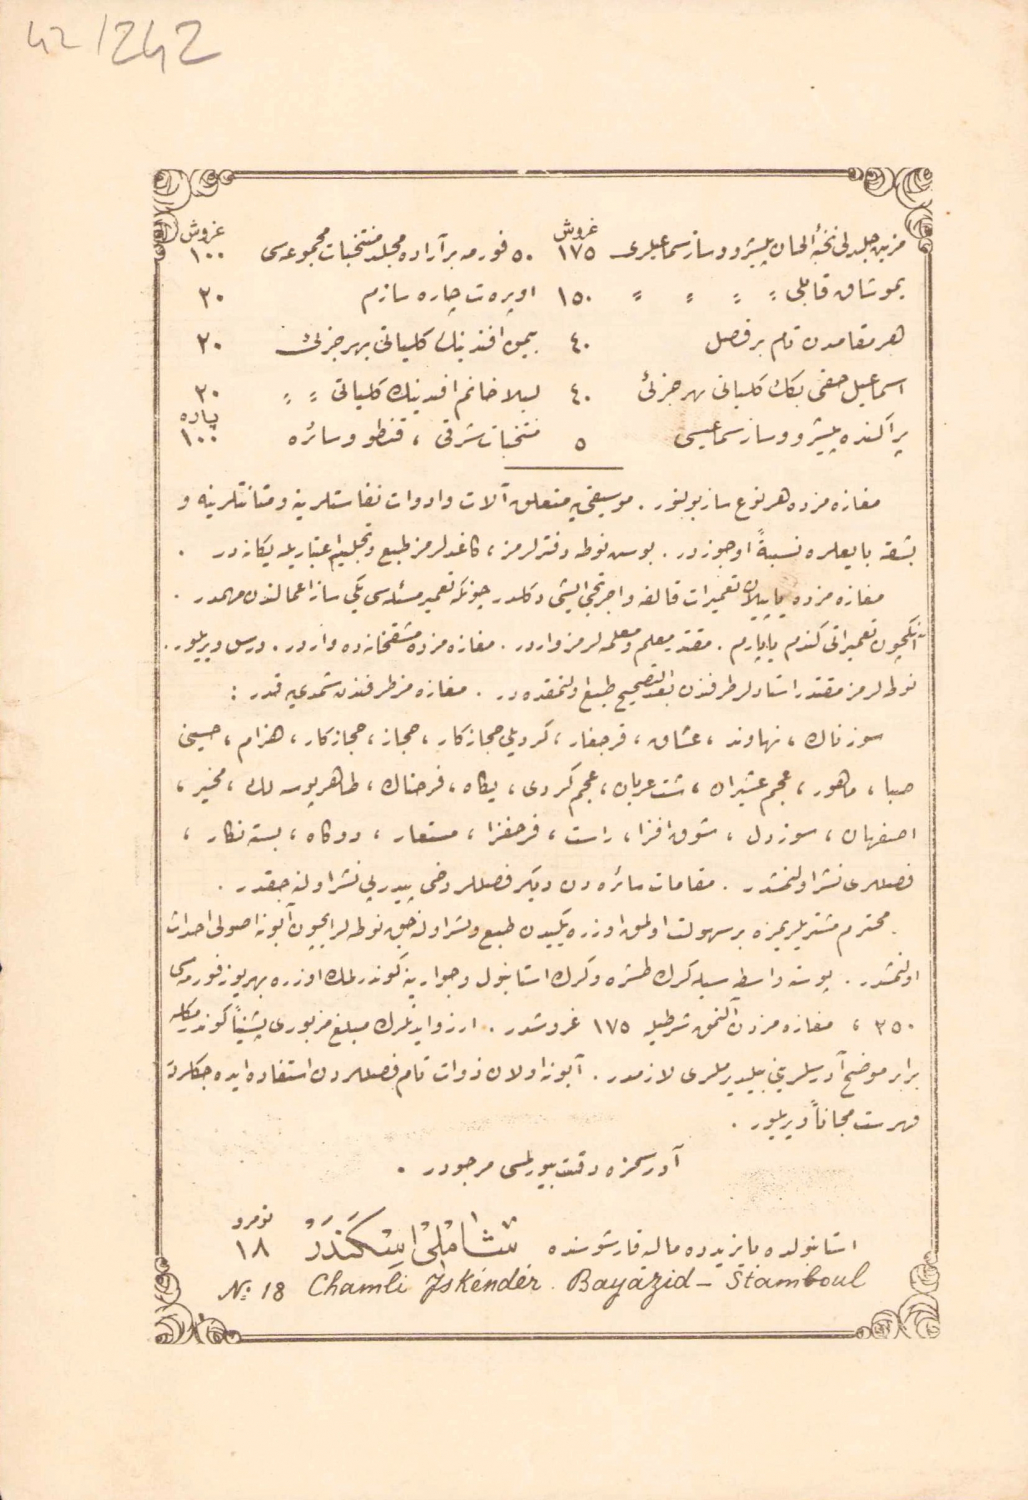 42/242
غروش غروش
مزین جلدلی نخبهٔ الحان پیشرو و ساز سماعیلری ١٧٥ ٥٠ فورمه بر آراده مجلد منتخبات مجموعه‌سی ١٠٠
یموشاق قابلی〃 〃 〃 〃 ١٥٠ اوپره‌ت چاره سازم ٢٠
هر مقامدن تام بر فصل ٤٠ یمین افندینك کلیاتی بهر جزئی ٢٠
اسماعیل حقی بك کلیاتی بهر جزئی ٤٠ لیلا خانم افندینك کلیاتی 〃 〃 ٢٠
پراکنده پیشرو و ساز سماعیسی ٥ منتخبات شرقی ، قنطو و سائره پاره ١٠٠
مغازه مزده هر نوع ساز بولنور . موسیقی‌یه متعلق آلات و ادوات نفاستلرینه و متانتلرینه و
بشقه یایعلره نسبةً اوجوزدر . بوسن نوطه دفترلرمز ، کاغدلرمز طبع و تجلید اعتباریله یکانه در .
مغازه مزده یاپیلان تعمیرات قالفه و اجرتجی ایشی دکلدر چونکه تعمیر مسئله‌سی یکی ساز اعمالندن مهمدر .
آنکچون تعمیراتی کندم یاپارم . مقتدر معلم و معلمه لرمز واردر . مغازه مزده مشقخانه ده واردر . درس ویریلیور .
نوطه لرمز مقتدر استادلر طرفندن بعد التصحیح طبع اولنمقده در . مغازه مز طرفندن شمدی‌یه قدر :
سوزناك ، نهاوند ، عشاق ، قرجغار ، کردیلی حجازکار ، حجاز ، حجازکار ، هزام ، حسینی
صبا ، ماهور ، عجم عشیران ، شت عربان ، عجم کردی ، یکاه ، فرحناك ، طاهر بوسه لك ، مخیر ،
اصفهان ، سوزدل ، شوق افزا ، راست ، فرحفزا ، مستعار ، دوکاه ، بسته نکار ،
فصللری نشر اولنمشدر . مقامات سائره دن دیکر فصللر دخی پیدرپی نشر اولنه جقدر .
محترم مشتریلریمزه بر سهولت اولمق اوزره یکیدن طبع و نشر اولنه جق نوطه لر ایچون آبونه اصولی احداث
اولنمشدر . پوسته واسطه سیله کرك طشره و کرك استانبول و جوارینه کوندرلمك اوزره بهر یوز فورمه سی
٢٥٠ ، مغازه مزدن آلنمق شرطیله ١٧٥ غروشدر . آرزو ایدنلرك مبلغ مزبوری پشیناً کوندرمکله
برابر موضح آدرسلرینی بیلدیرملری لازمدر . آبونه اولان ذوات تام فصللردن استفاده ایده جکلردر
فهرست مجاناً ویریلیور .
آدرسمزه دقت بیورلمسی مرجودر .
استانبولده بایزیدده مالیه قارشوسنده شاملی اسکندر نومرو ١٨
No: 18 Chamli Iskender. Bayazid – Stamboul